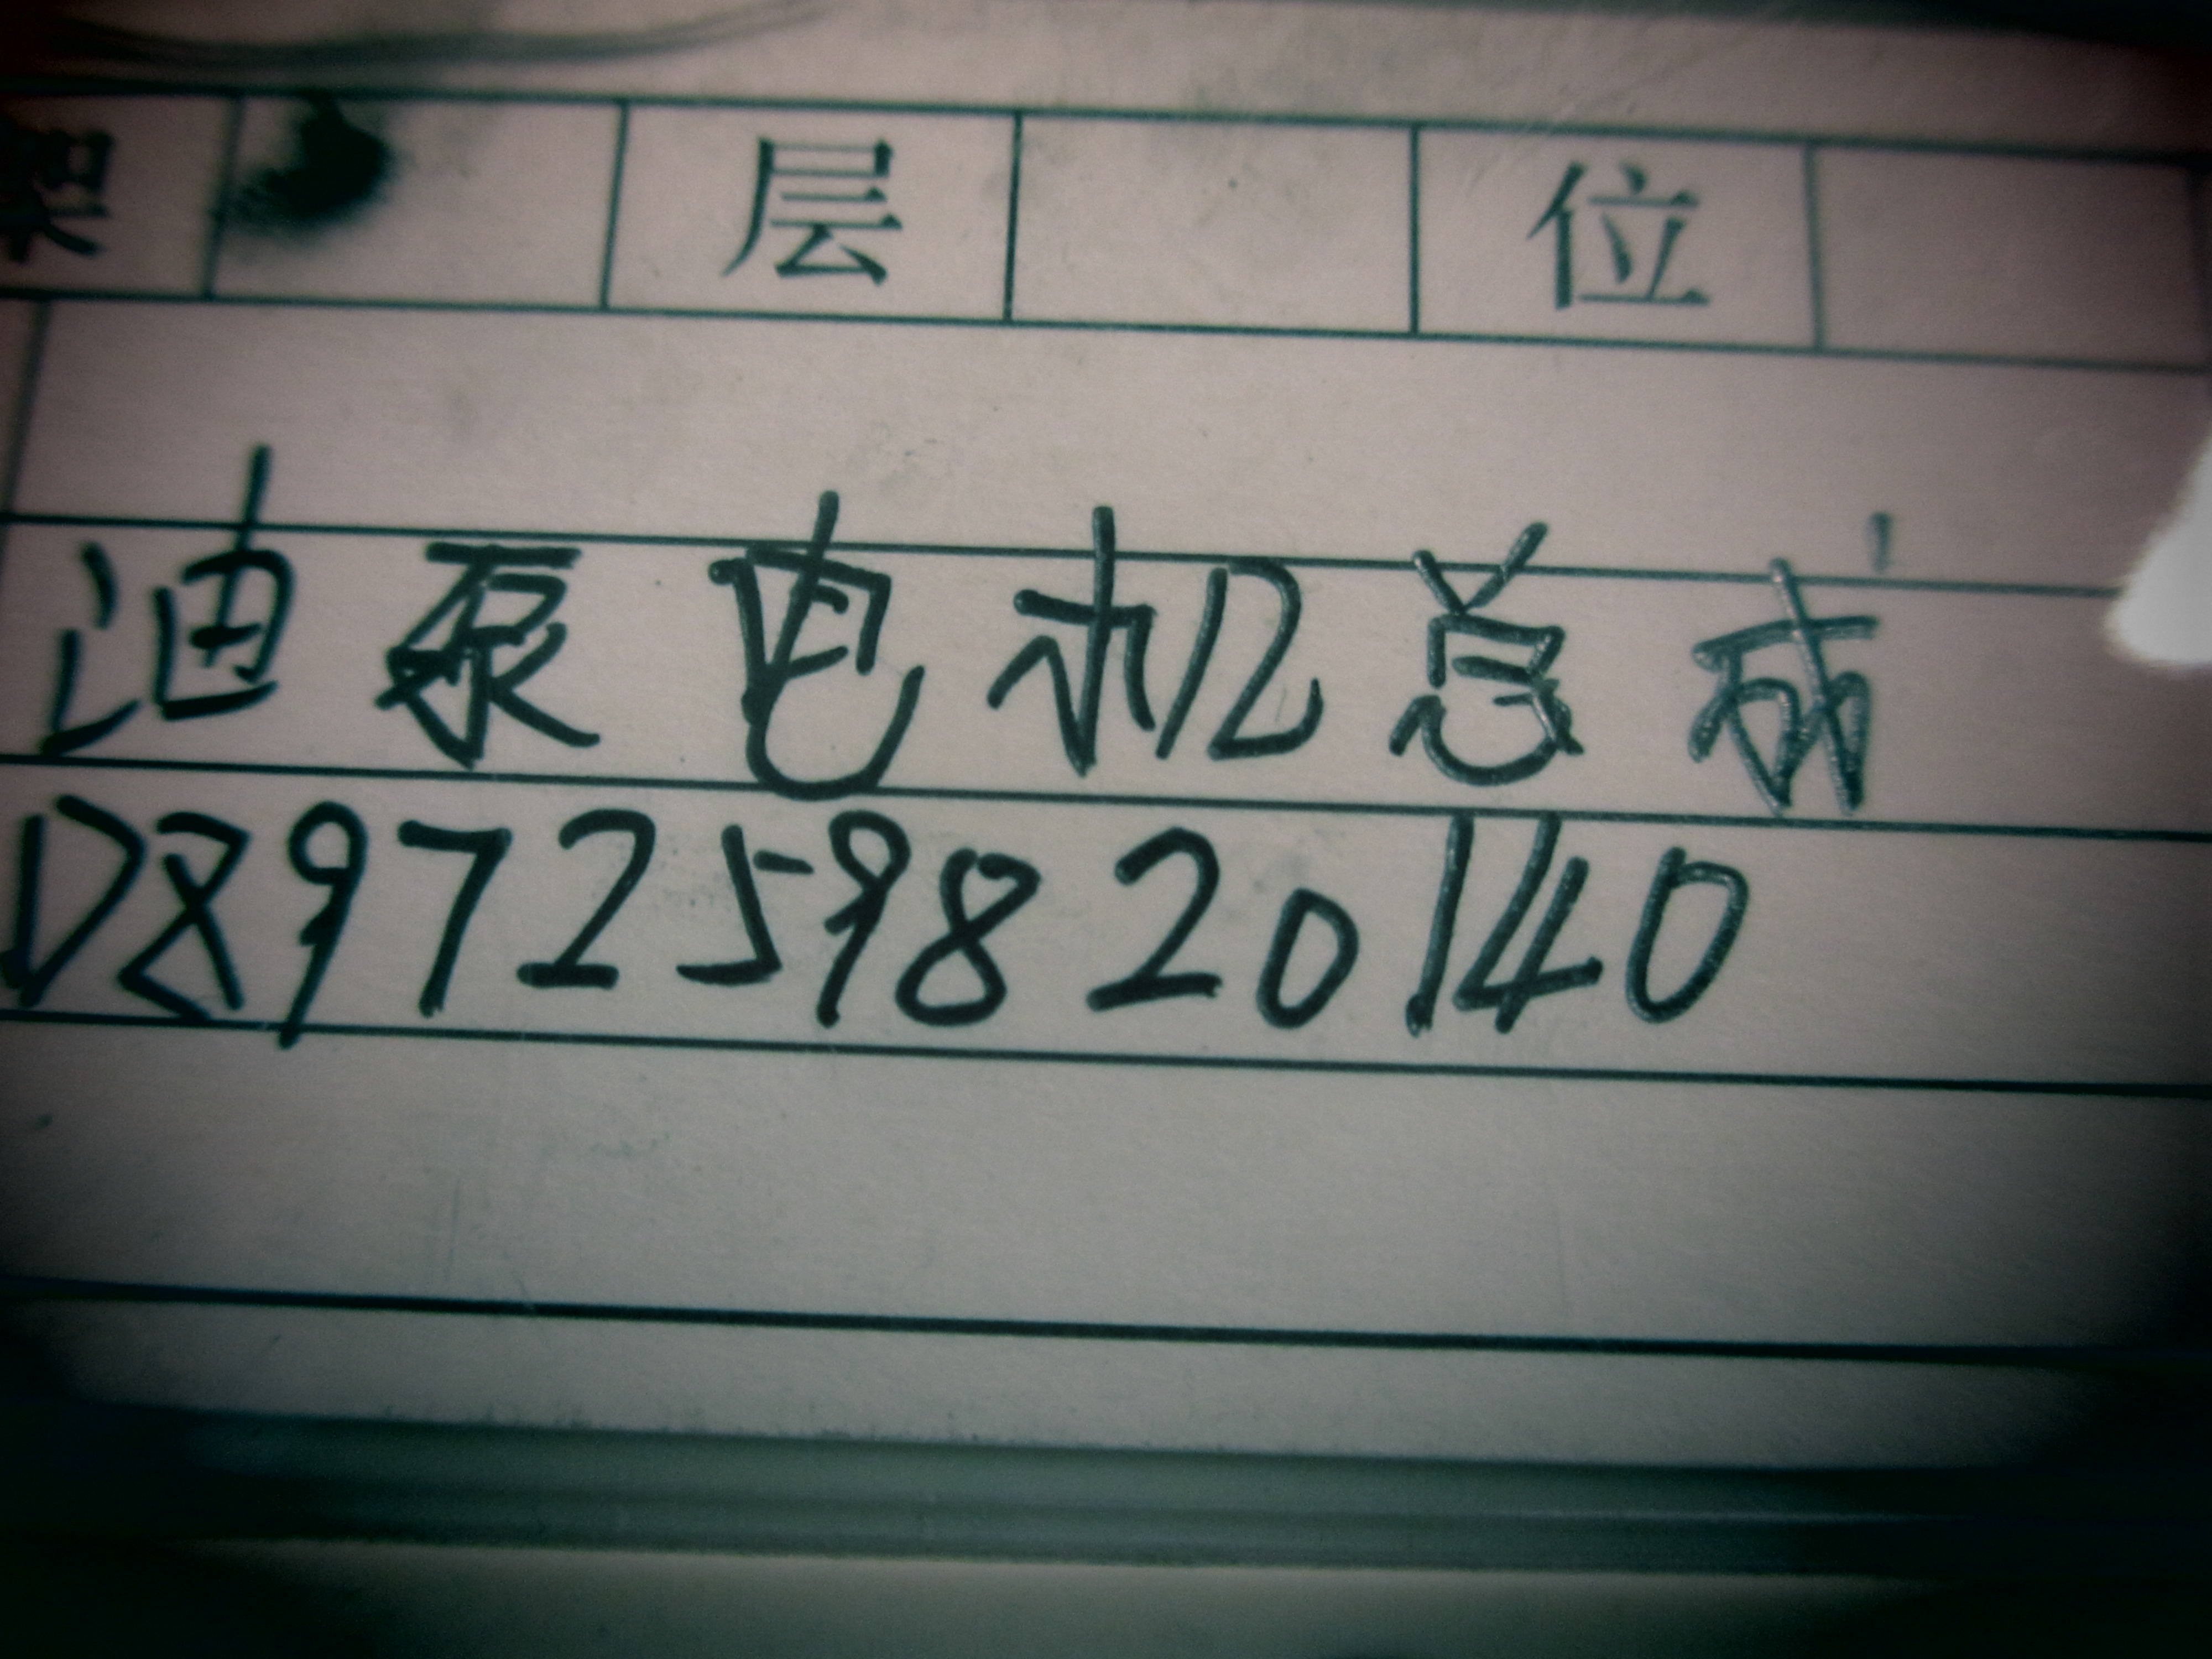 架 层 位
迪泵电机总成
D897259820140